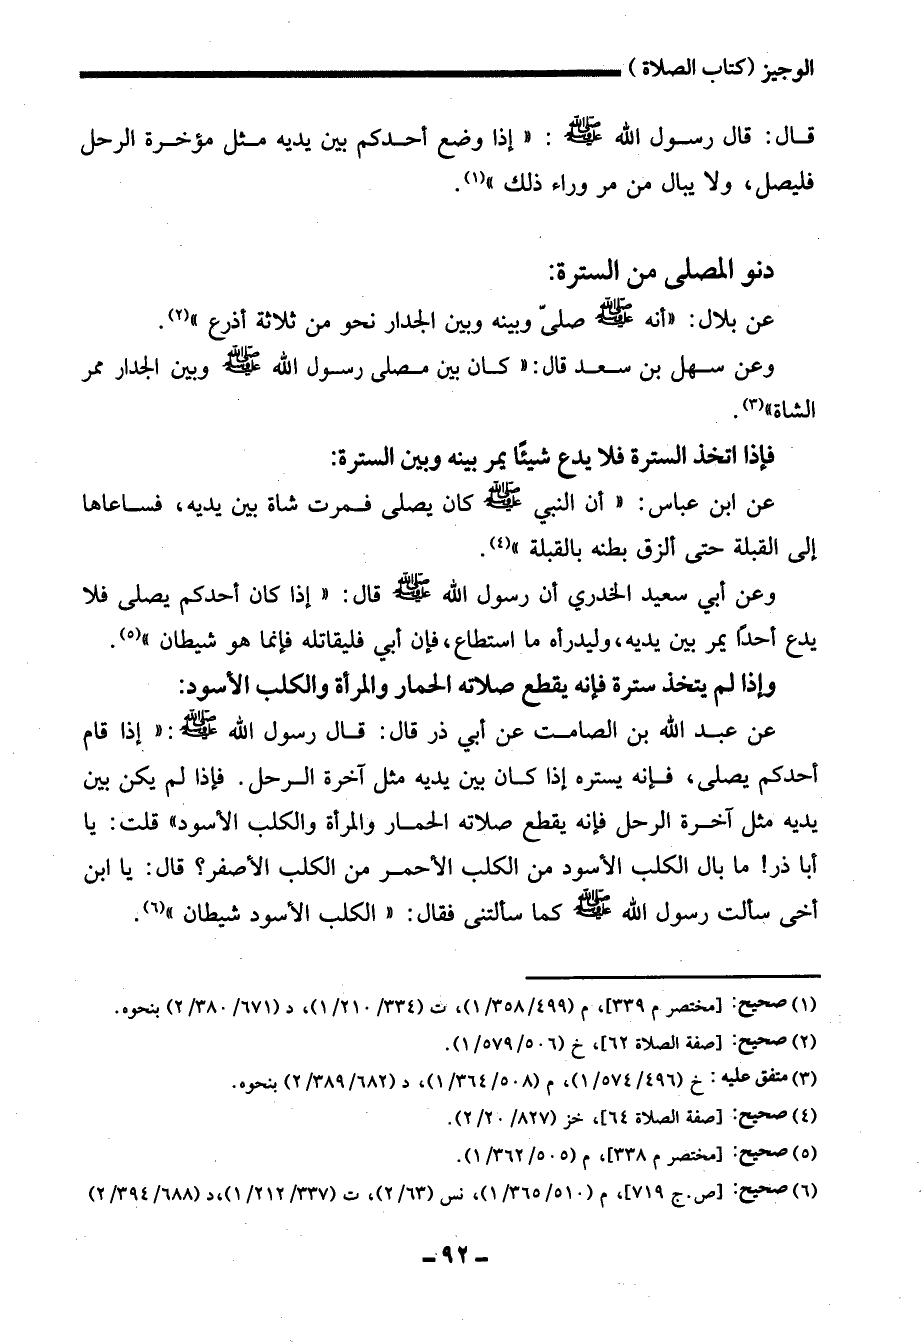 الوجيز (كتاب الصلاة)
قال: قال رسول الله ﷺ : « إذا وضع أحدكم بين يديه مثل مؤخرة الرحل
فليصل، ولا يبال من مر وراء ذلك »(١).
دنو المصلى من السترة:
عن بلال: «أنه ﷺ صلىّ وبينه وبين الجدار نحو من ثلاثة أذرع »(٢).
وعن سهل بن سعد قال:« كان بين مصلى رسول الله ﷺ وبين الجدار ممر
الشاة»(٣).
فإذا اتخذ السترة فلا يدع شيئًا يمر بينه وبين السترة:
عن ابن عباس: « أن النبي ﷺ كان يصلى فمرت شاة بين يديه، فساعاها
إلى القبلة حتى ألزق بطنه بالقبلة »(٤).
وعن أبي سعيد الخدري أن رسول الله ﷺ قال: « إذا كان أحدكم يصلى فلا
يدع أحدًا يمر بين يديه، وليدرأه ما استطاع، فإن أبي فليقاتله فإنما هو شيطان »(٥).
وإذا لم يتخذ سترة فإنه يقطع صلاته الحمار والمرأة والكلب الأسود:
عن عبد الله بن الصامت عن أبي ذر قال: قال رسول الله ﷺ:« إذا قام
أحدكم يصلى، فإنه يستره إذا كان بين يديه مثل آخرة الرحل. فإذا لم يكن بين
يديه مثل آخرة الرحل فإنه يقطع صلاته الحمار والمرأة والكلب الأسود» قلت: يا
أبا ذر! ما بال الكلب الأسود من الكلب الأحمر من الكلب الأصفر؟ قال: يا ابن
أخى سألت رسول الله ﷺ كما سألتنى فقال: « الكلب الأسود شيطان »(٦).
(١) صحيح: [مختصر م ٣٣٩]، م (١/٣٥٨/٤٩٩)، ت (١/٢١٠/٣٣٤)، د (٢/٣٨٠/٦٧١) بنحوه.
(٢) صحيح: [صفة الصلاة ٦٢]، خ (١/٥٧٩/٥٠٦).
(٣) متفق عليه : خ (١/٥٧٤/٤٩٦)، م (١/٣٦٤/٥٠٨)، د (٢/٣٨٩/٦٨٢) بنحوه.
(٤) صحيح: [صفة الصلاة ٦٤]، خز (٢/٢٠/٨٢٧).
(٥) صحيح: [مختصر م ٣٣٨]، م (١/٣٦٢/٥٠٥).
(٦) صحيح: [ص.ج ٧١٩]، م (١/٣٦٥/٥١٠)، نس (٢/٦٣)، ت (١/٢١٢/٣٣٧)،د (٢/٣٩٤/٦٨٨)
- ٩٢ -